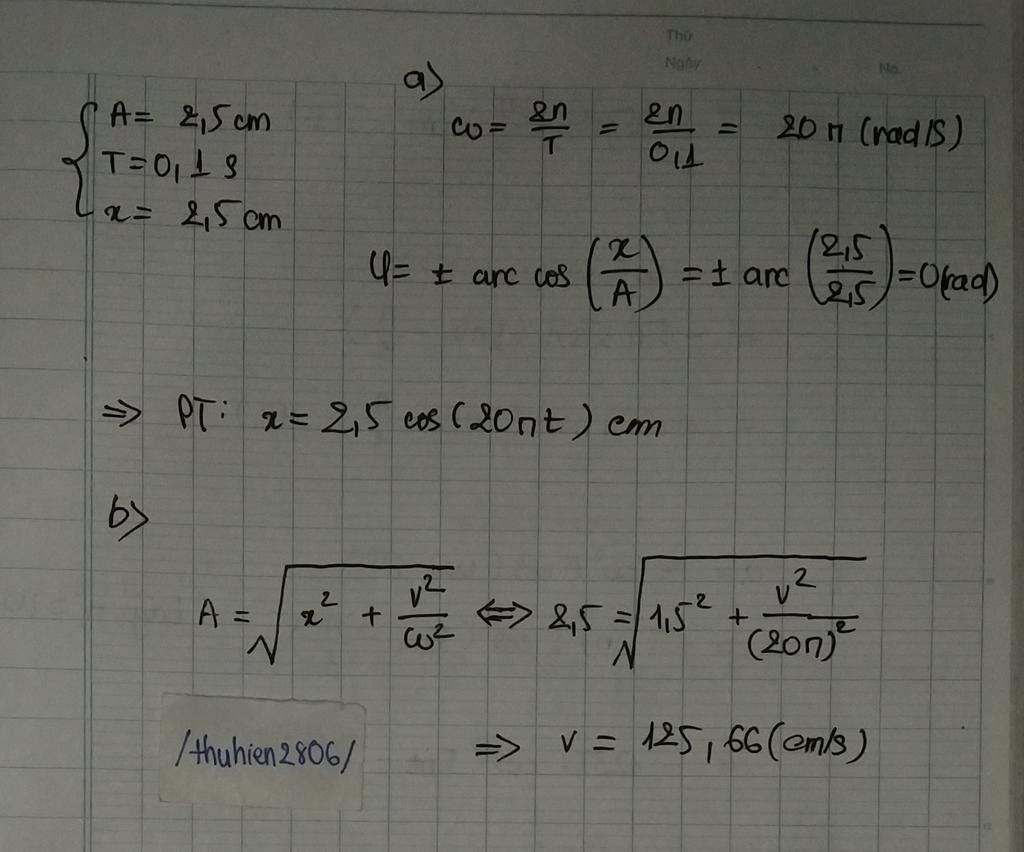 Thứ
Ngày
No.
a)
A= 2,5 cm
T=0,1 s
x= 2,5 cm
ω = 2π/T = 2π/0,1 = 20π (rad/s)
φ= ± arc cos (x/A) = ± arc (2,5/2,5) = 0(rad)
=> PT: x= 2,5 cos(20πt) cm
b)
A = √(x² + v²/ω²) <=> 2,5 = √(1,5² + v²/(20π)²)
/thuhien2806/
=> v = 125,66(cm/s)